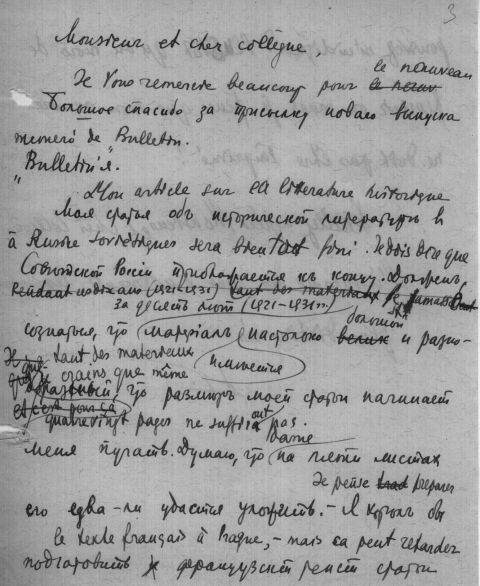 3
Monsieur et cher collègue,
le nouveau
Je Vous remercie beaucoup pour
Большое спасибо за присылку новаго выпуска
numéro de "Bulletin.
"Bulletin'я.
Mon article sur la litterature historique
Моя статья объ исторической литературѣ в
à Russie Soviétiques sera bientôt fini. Je dois dire que
Совѣтской Россіи приближается къ концу. Долженъ
(1921-1931) tant des materiaux
за десять лѣт (1921-1931 гг)
большой
сознаться, что матеріалъ настолько велик и разно-
tant des materieaux имеется
Je crains que même
образный что размѣръ моей статьи начинает
et c'est pour ça
quatrevingt pages ne suffiront pas.
меня пугать. Думаю, что на пяти листах
Je pense préparer
его едва-ли удастся уложить. - Я хотѣлъ бы
le texte français à Prague, - mais ca peut retarder
подготовить французскій текст статьи